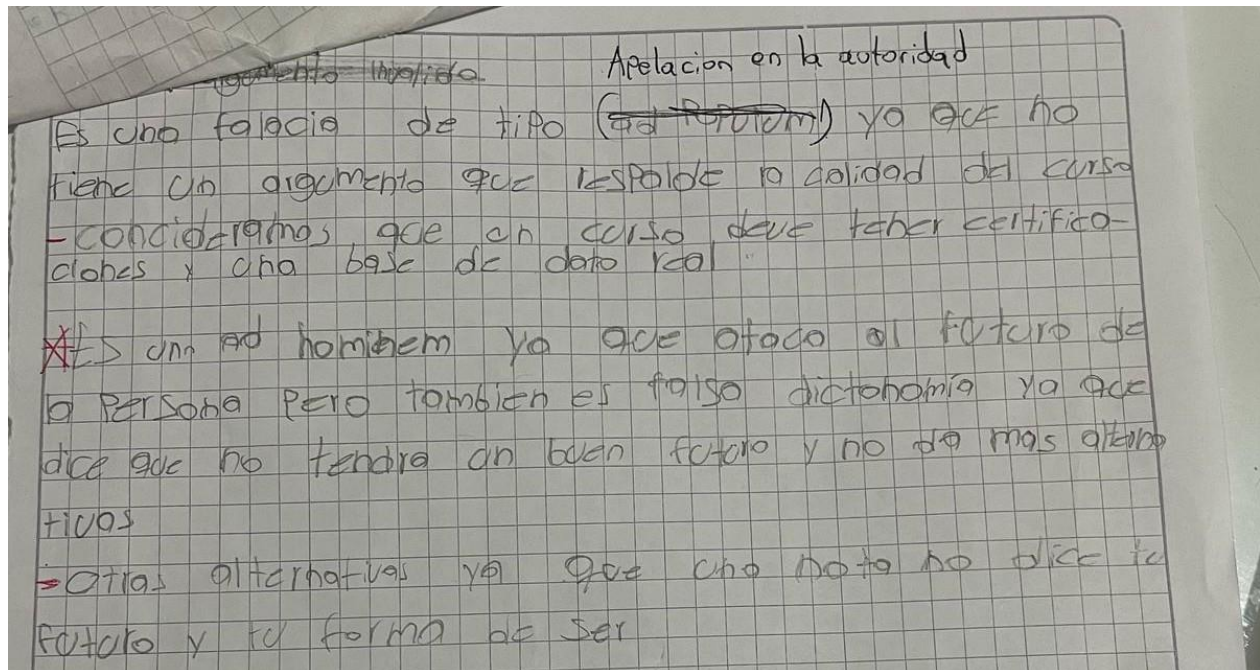 Apelacion en la autoridad
Es una falacia de tipo (ad Populum) ya que no
tiene un argumento que respalde la calidad del curso
- concideramos que un curso deve tener certifica-
ciones y una base de dato real
Es un ad hominem ya que ataca al futuro de
la Persona Pero tambien es falso dictonomia ya que
dice que no tendra un buen futuro y no da mas alterna
tivas
- otras alternativas ya que una nota no dice tu
futuro y tu forma de ser